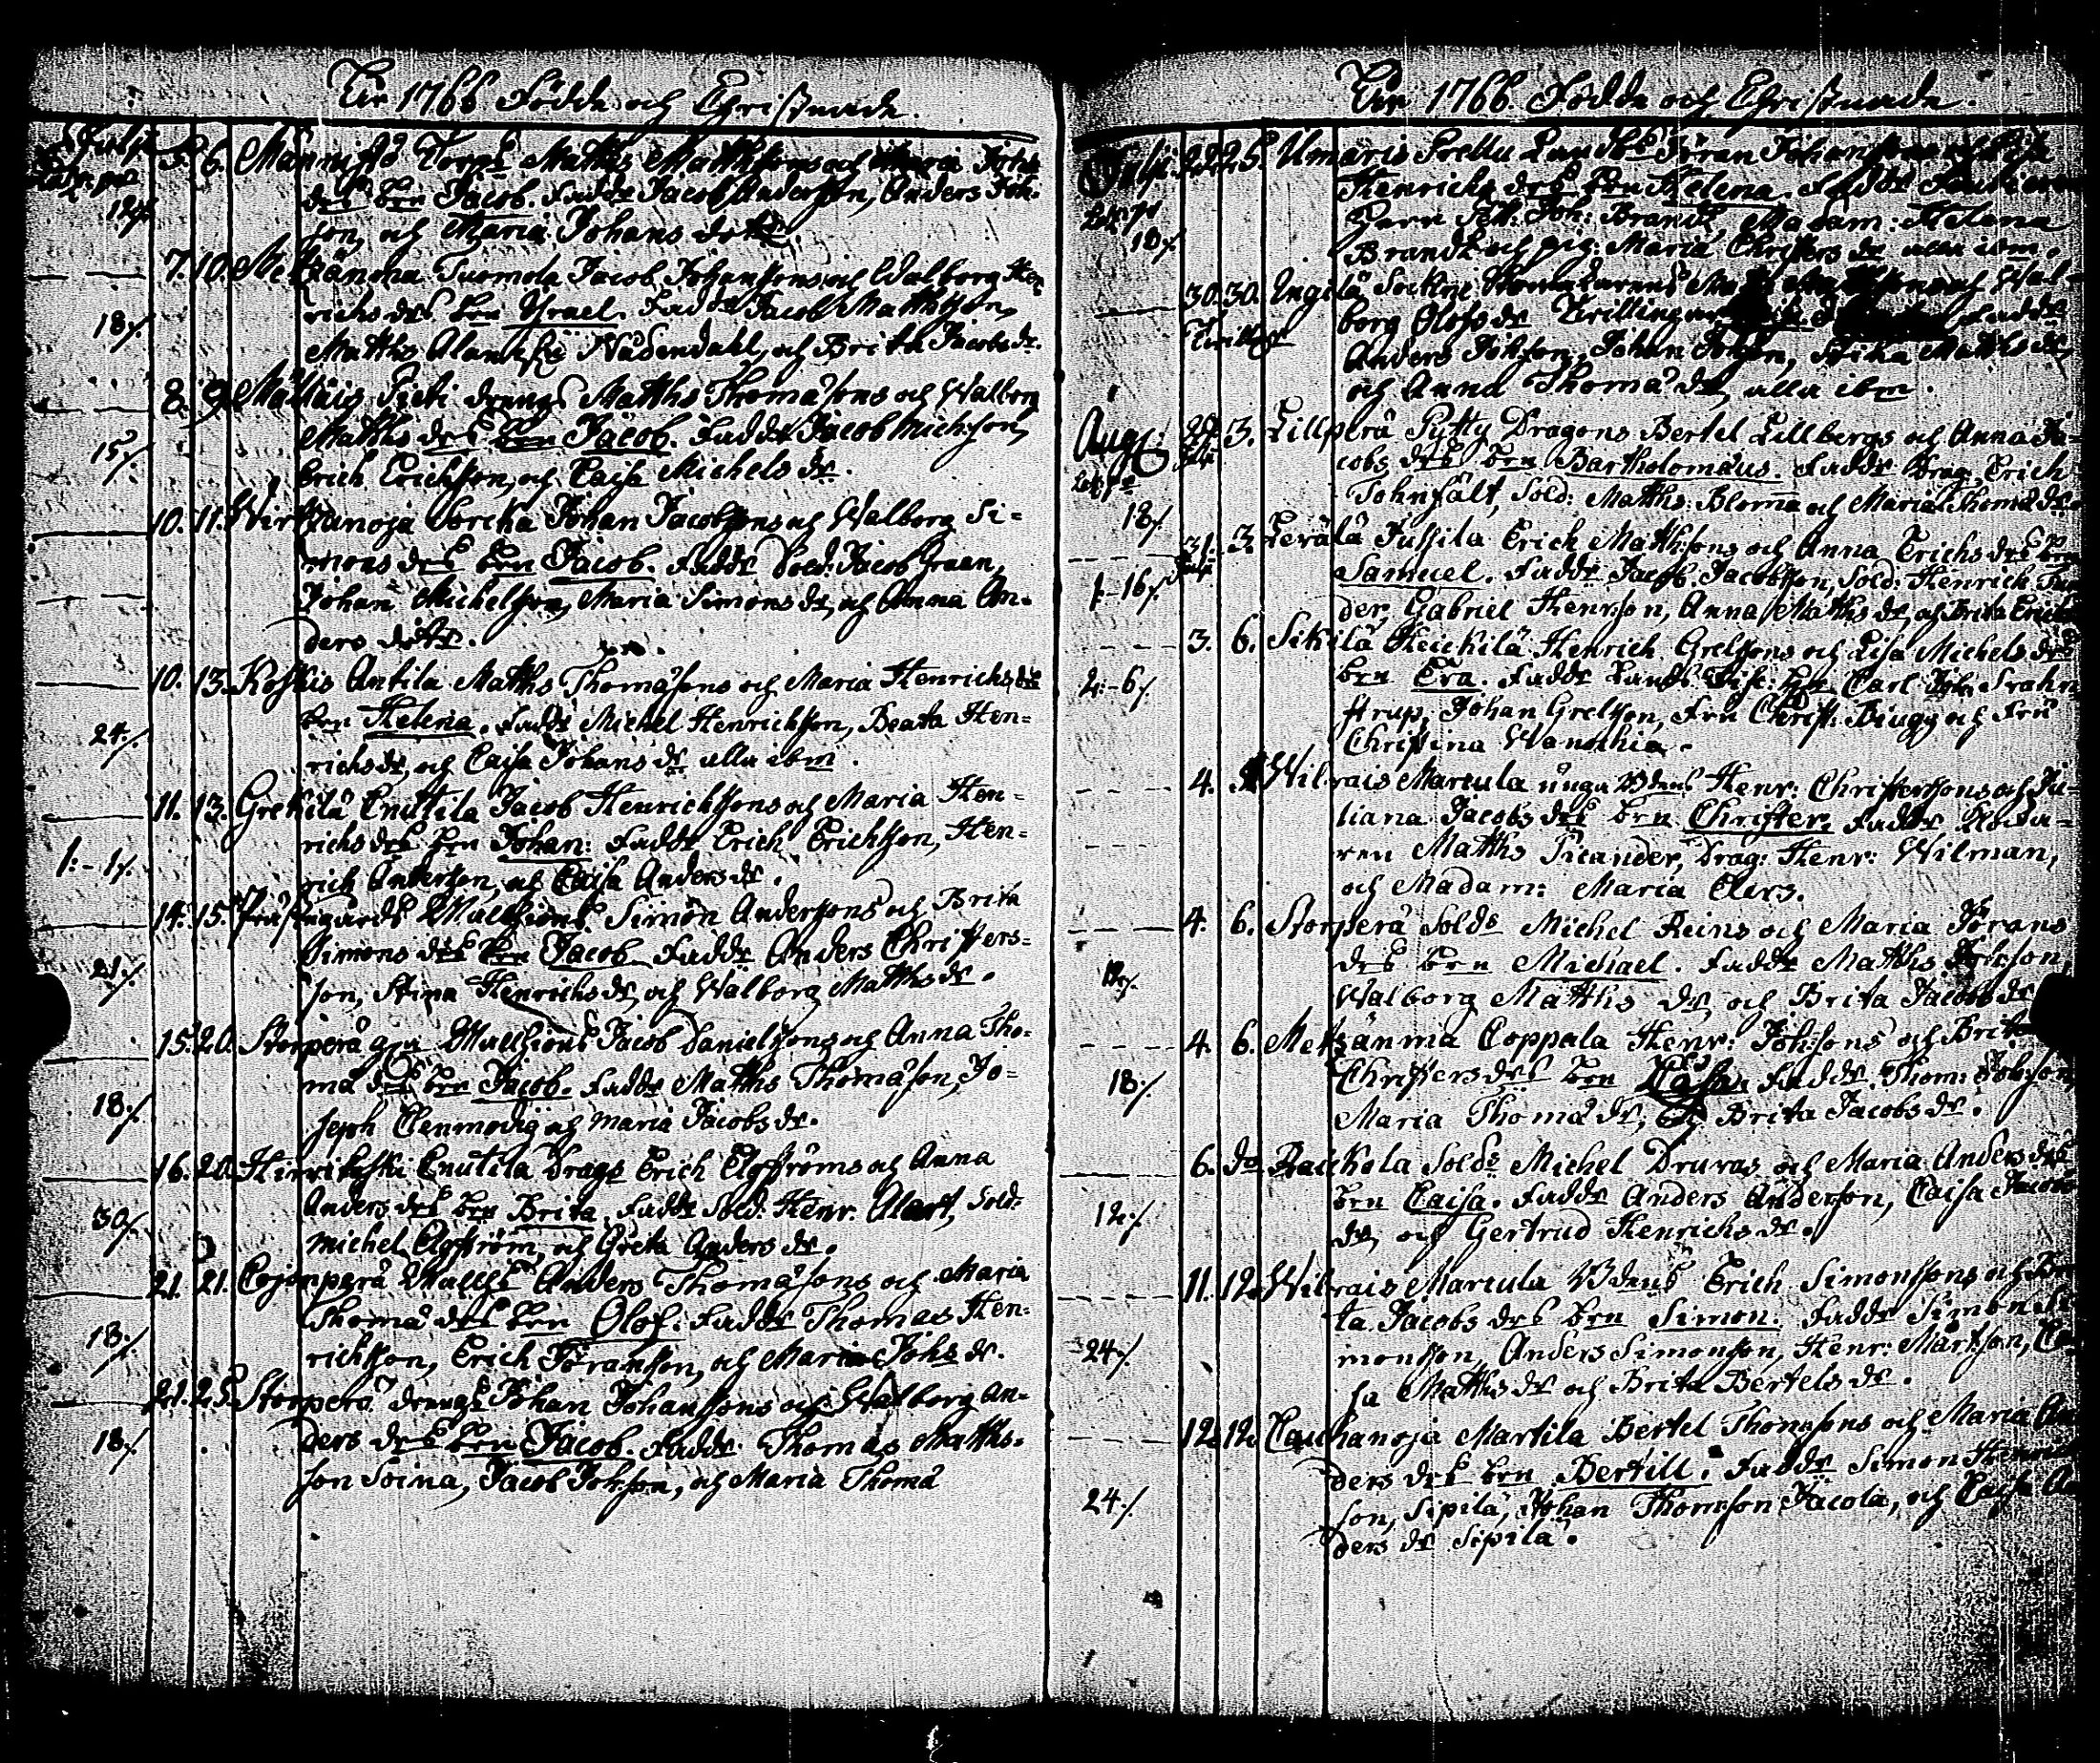 År 1766 Födde och Christnade.
5. 6. Mannistö Torp: Matths Matthssons och Maria Joh:
drs barn Jacob. Fadd: Jacob Andersson, Anders Joh:
son, och Maria Johans dotr.
12/.
7. 10. Metzänma Tuomola Jacob Johanssons och Walborg Hen
richs drs barn Ysrael. Fadd: Jacob Matthsson,
18/.
Matths Alan ifrå Nådendahl, och Brita Jacobs dr.
8. 9. Mattais Pieti drengs Matths Thomæsons och Walborg
Matths drs barn Jacob. Fadd: Jacob Michson,
15/.
Erich Erichson, och Caisa Michels dr.
10. 11. Johan Jacobssons och Walborg Si=
mons drs barn Jacob. Fadd: Sold: Jacob
Johan Michelsson, Maria Simons dr, och Anna An=
ders dotr.
10. 13. Koskis Antila Matths Thomæsons och Maria Henrichs drs
barn Helena. Fadd: Michel Henrichson, Beata Hen=
24/.
richs dr, och Caisa Johans dr alla ibm.
11. 13. Grekilä Cnutila Jacob Henrichssons och Maria Hen=
richs drs barn Johan: Fadd: Erich Erichson, Hen=
1:-1/.
rich Anderson, och Caisa Anders dr.
14. 15. Prästgårds Simon Anderssons och Brita
Simons drs barn Jacob. Fadd: Anders Christers=
21/.
son, Stina Henrichs dr, och Walborg Matths dr.
15. 20. Storperä Jacob Danielssons och Anna Tho=
mæ drs barn Jacob. Fadd: Matths Thomæson, Jo=
18/.
seph Clenmodig och Maria Jacobs dr.
16. 20. Hirvikoski Cnutila Drags Erich Elgströms och Anna
Anders drs barn Brita. Fadd: Sold: Henr: Alart, Sold:
30/.
Michel Elgström, och Greta Anders dr.
21. 21. Cojonperä Anders Thomæsons och Maria
Thomæ drs barn Olof. Fadd: Thomas Hen=
18/.
richsson, Erich Göransson, och Maria Johs dr.
21. 25. Storperä drengs Johan Johanssons och Walborg An=
18/.
ders drs barn Jacob. Fadd: Thomas Matths=
son Soina, Jacob Johsson, och Maria Thomæ
År 1766. Födde och Christnade.
Julii 22. 25. Umaris Prettu Landb: Göran Johanssons och Lisa
Henrichs drs barn Helena. Fadd:
Herr Joh: Brandt, Madam: Helena
18/.
Brandt och pig: Maria Christers dr alla ibm.
30. 30. Yngilä och Wal=
borg Olofs dr Trillingar Fadd:
Trillingr
Anders Johson, Johan Johson, Stina Matths dr,
och Anna Thomæ dr, alla ibm.
Aug: 29. 3. Lillperä Pytty Dragons Bertel Lillbergs och Anna Ja=
Julii
cobs drs barn Bartholomæus. Fadd: Drag: Erich
Tohnfält, Sold: Matths: Bloma och Maria Thomæ dr.
18/.
31. 3. Leräla Jussila Erich Matthssons och Anna Erichs drs barn
Julii
Samuel. Fadd: Jacob: Jacobsson, Sold: Henrich
1:-16/.
der, Gabriel Henrsson, Anna Matths dr, och Brita Erichs
3. 6. Sikilä Heickilä Henrich Grelssons och Lisa Michels drs
barn Eva. Fadd: Carl
2:-6/.
strup, Johan Grelsson, Fru Christ: Biugg och Fru
Christina Wanæthia.
4. Wilvais Marcula unga Bdens Henr: Christerssons och Ju=
liana Jacobs drs barn Christer. Fadd: Klocka=
ren Matths Sicander, Drag: Henr: Wilman,
och Madam: Maria Clers.
4. 6. Storperä Solds Michel Reins och Maria Görans
drs barn Michael. Fadd: Matths Erichson
12/.
Walborg Matths dr, och Brita Jacobs dr
4. 6. Metzänma Coppala Henr: Johssons och Brita
Christers drs barn Caisa. Fadd: Thom: Johson,
18/.
Maria Thomæ dr, och Brita Jacobs dr.
6. do Raickola Solds Michel Druvas och Maria Anders drs
barn Caisa. Fadd: Anders Anderson, Caisa Jacobs
12/.
dr, och Gertrud Henrichs dr.
11. 12. Wilvais Marcula Bdens Erich Simonssons och Bri
ta Jacobs drs barn Simon. Fadd: Simon Si
24/.
monsson, Anders Simonsson, Henr: Martson, Cai
sa Matths dr och Brita Bertels dr.
12. 12. Cauhanoja Martila Bertel Thomssons och Maria An
ders drs barn Bertill. Fadd: Simon
24/.
son, Sipilä, Johan Thomsson Jacola, och Caisa An
ders dr Sipilä.